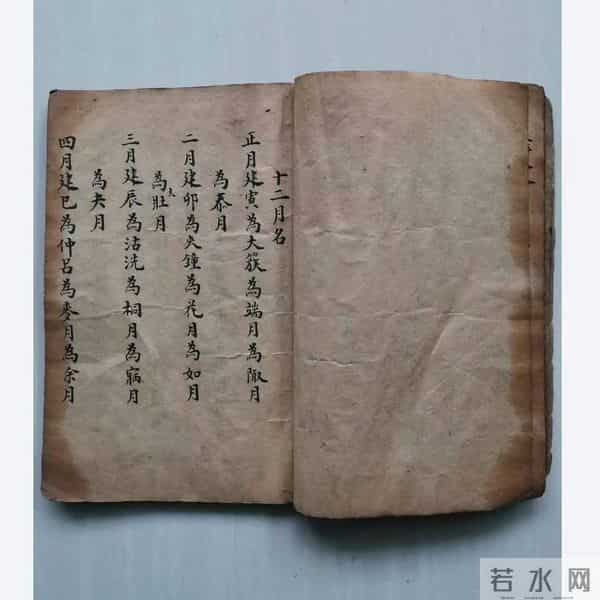 十二月名
正月建寅為大簇為端月為陬月
為泰月
二月建卯為夾鐘為花月為如月
為大壯月
三月建辰為沽洗為桐月為寎月
為夬月
四月建巳為仲呂為麥月為余月
若水网